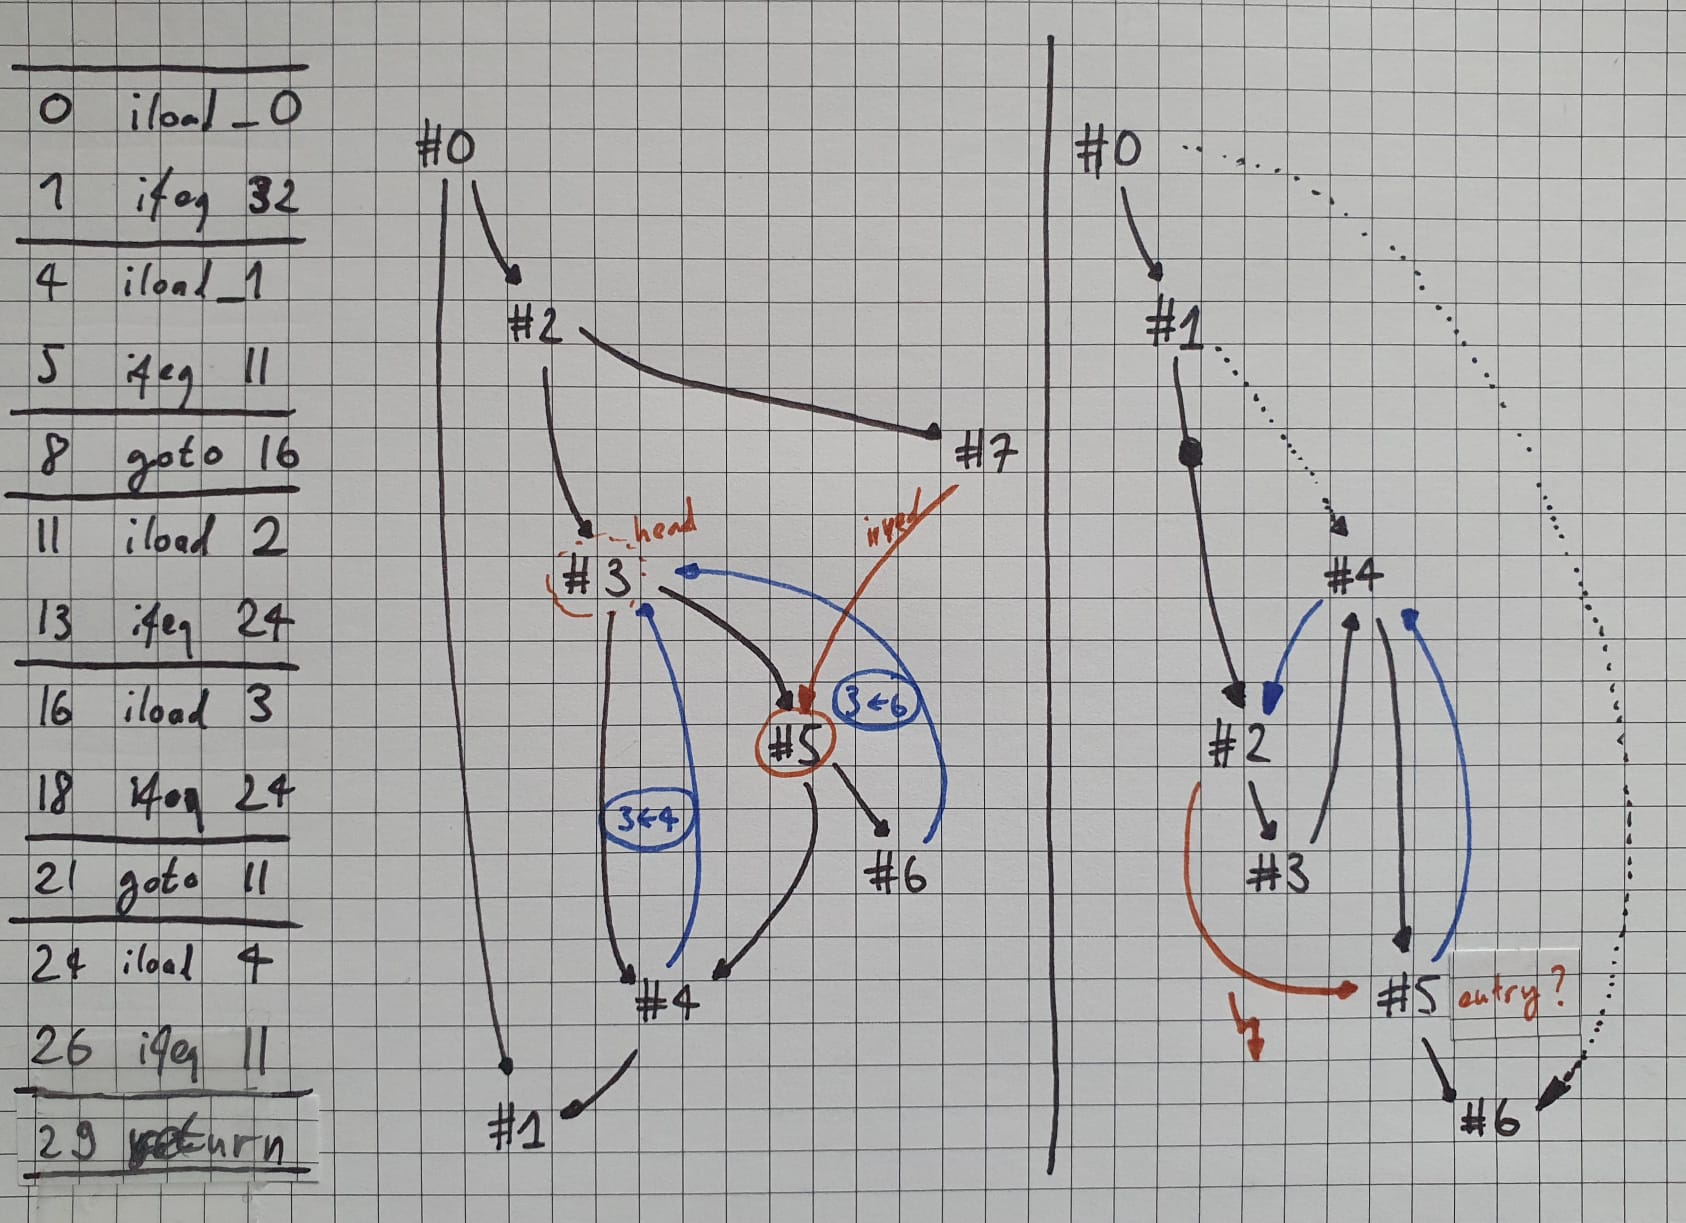 0 iload_0
1 ifeq 32
4 iload_1
5 ifeq 11
8 goto 16
11 iload 2
13 ifeq 24
16 iload 3
18 ifeq 24
21 goto 11
24 iload 4
26 ifeq 11
29 return
#0
#2
#7
head
irred
#3
3←6
#5
3←4
#6
#4
#1
#0
#1
#4
#2
#3
#5 entry?
#6